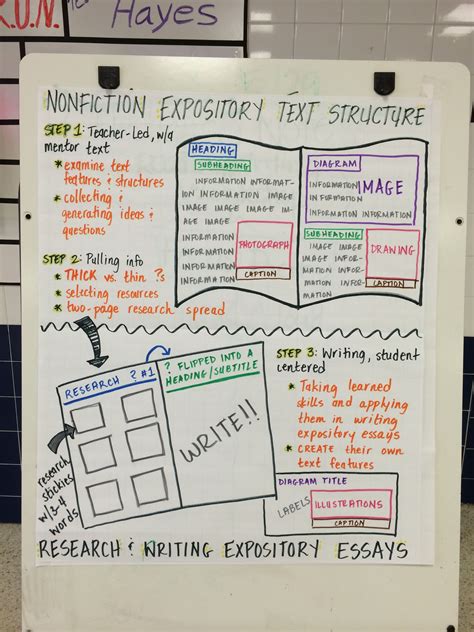 R.U.N.
Hayes
NONFICTION EXPOSITORY TEXT STRUCTURE
STEP 1: Teacher-Led, w/a
mentor text
* examine text
features & structures
* collecting &
generating ideas &
questions
STEP 2: Pulling info
* THICK vs. thin ?s
* selecting resources
* two-page research spread
HEADING
SUBHEADING
INFORMATION INFORMAT-
ION INFORMATION IMAGE
IMAGE IMAGE IMAGE IM-
AGE IMAGE
INFORMATION
INFORMATION
INFORMATION
INFORMATION
INFORMATION
PHOTOGRAPH
CAPTION
DIAGRAM
INFORMATION
INFORMATION
INFORMATION INFORMATION
IMAGE
SUBHEADING
IMAGE IMAGE
INFORMATION
IMAGE INFOR-
MATION IMAGE
INFORMATION
INFORMATION
DRAWING
CAPTION
RESEARCH ? #1
? FLIPPED INTO A
HEADING/SUBTITLE
WRITE!!
research
stickies
w/3-4
words
STEP 3: Writing, student
centered
* Taking learned
skills and applying
them in writing
expository essays
* CREATE their own
text features
DIAGRAM TITLE
LABELS
ILLUSTRATIONS
CAPTION
RESEARCH & WRITING EXPOSITORY ESSAYS